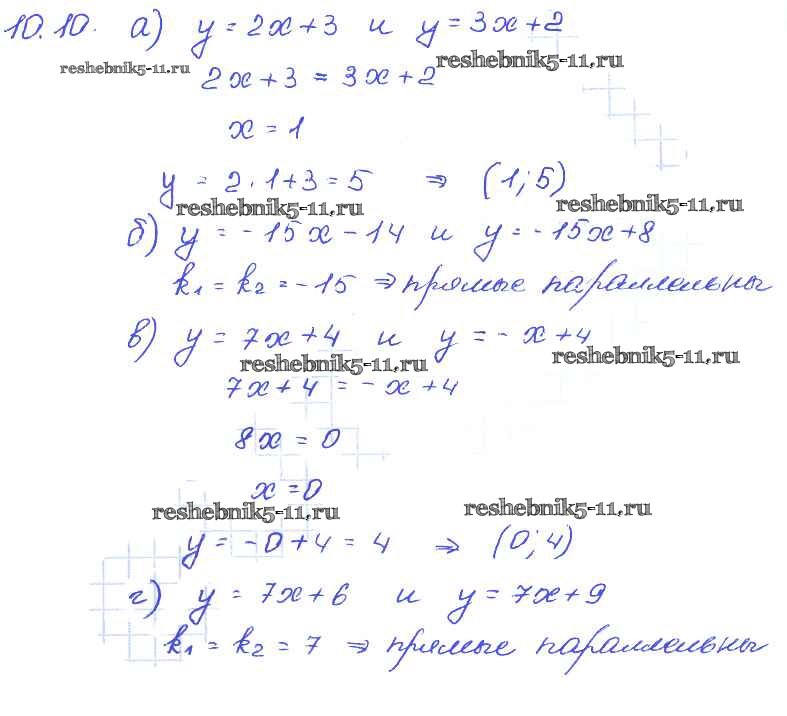 10.10. а) y = 2x + 3 и y = 3x + 2
reshebnik5-11.ru reshebnik5-11.ru
2x + 3 = 3x + 2
x = 1
y = 2 · 1 + 3 = 5 ⇒ (1; 5)
reshebnik5-11.ru reshebnik5-11.ru
б) y = -15x - 14 и y = -15x + 8
k₁ = k₂ = -15 ⇒ прямые параллельны
в) y = 7x + 4 и y = -x + 4
reshebnik5-11.ru reshebnik5-11.ru
7x + 4 = -x + 4
8x = 0
x = 0
reshebnik5-11.ru reshebnik5-11.ru
y = -0 + 4 = 4 ⇒ (0; 4)
г) y = 7x + 6 и y = 7x + 9
k₁ = k₂ = 7 ⇒ прямые параллельны